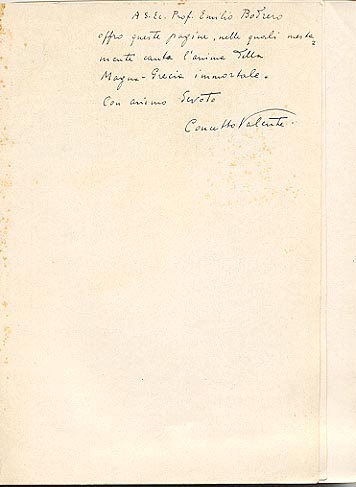 A S. Ec. Prof. Emilio Bodrero
offro queste pagine, nelle quali mesta=
mente canta l'anima della
Magna-Grecia immortale.
Con animo devoto
Concetto Valente.